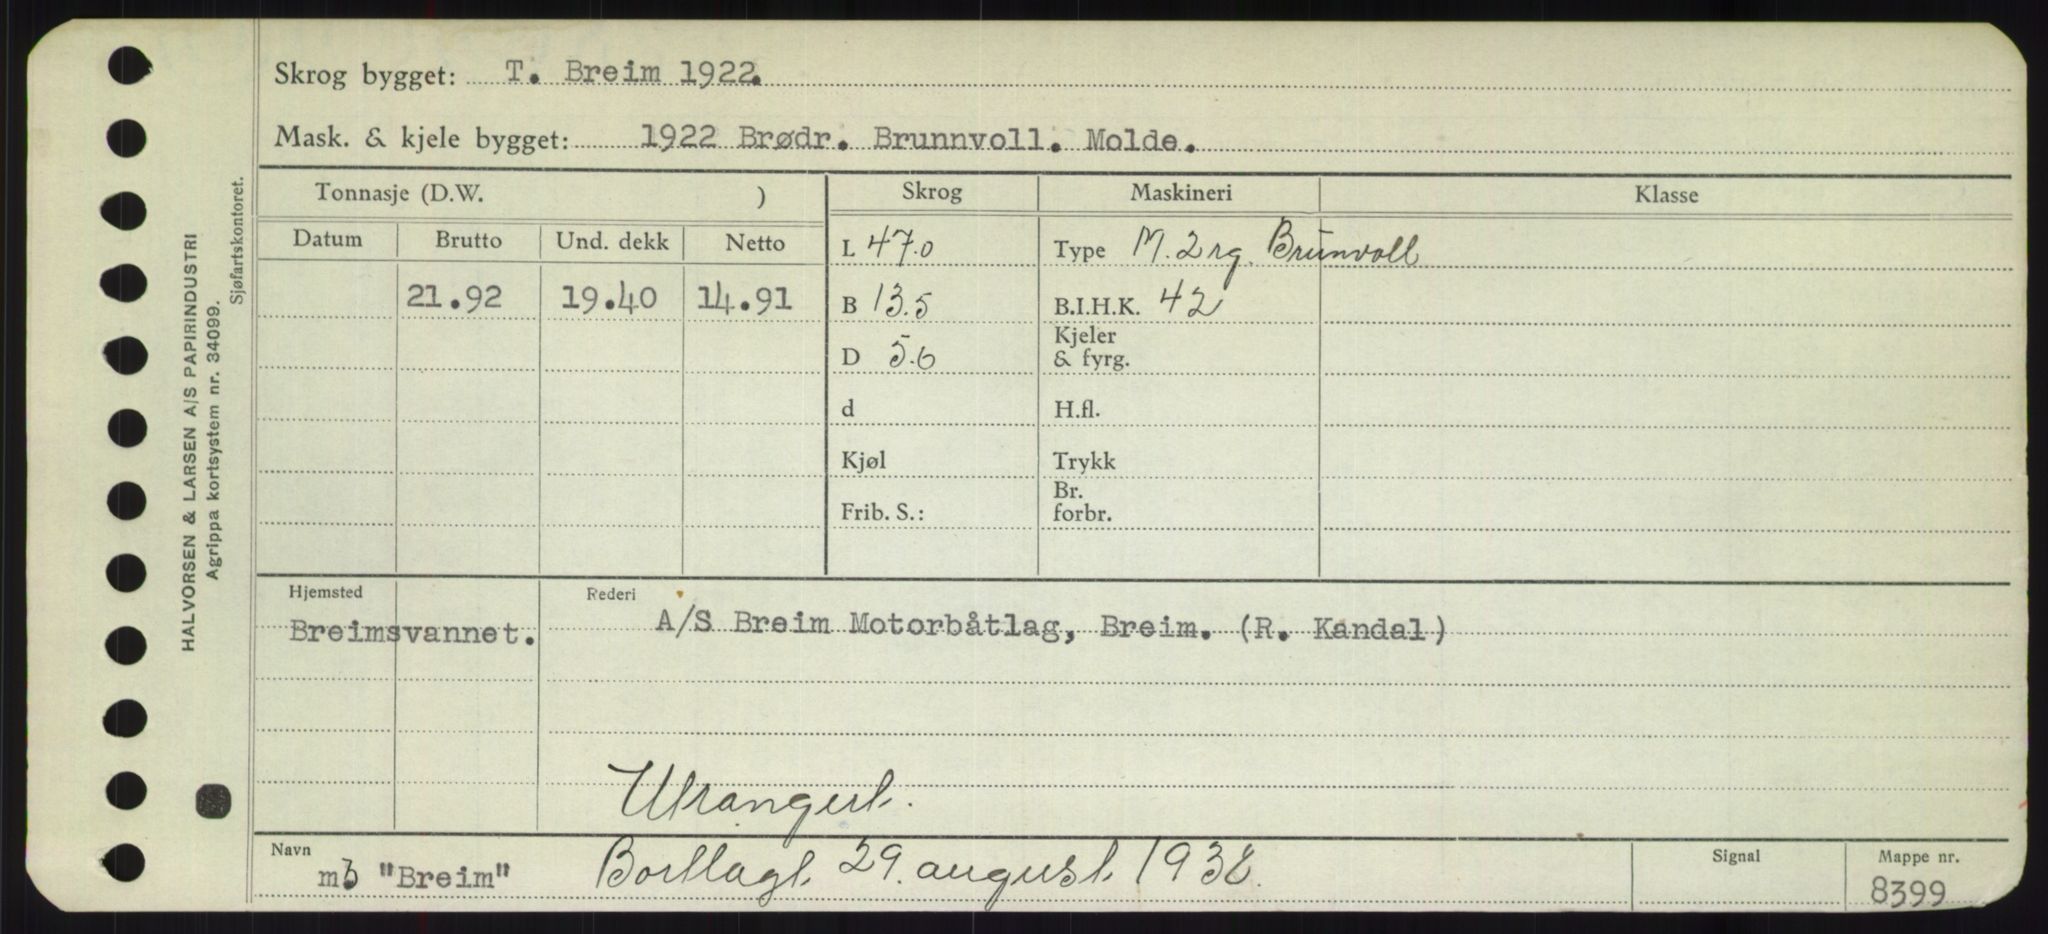 Skrog bygget: T. Breim 1922.
Mask. & kjele bygget: 1922 Brødr. Brunnvoll. Molde.
Tonnasje (D.W. ) Skrog Maskineri Klasse
Datum Brutto Und. dekk Netto
L 47.0 Type M. 2 rg. Brunvoll
21.92 19.40 14.91 B 13.5 B.I.H.K. 42
D 5.6 Kjeler & fyrg.
d H.fl.
Kjøl Trykk
Frib. S.: Br. forbr.
Hjemsted Rederi
Breimsvannet. A/S Breim Motorbåtlag, Breim. (R. Kandal)
Utrangert.
Navn Signal Mappe nr.
mb "Breim" Bortlagt 29. august 1938. 8399
HALVORSEN & LARSEN A/S PAPIRINDUSTRI
Agrippa kortsystem nr. 34099.
Sjøfartskontoret.